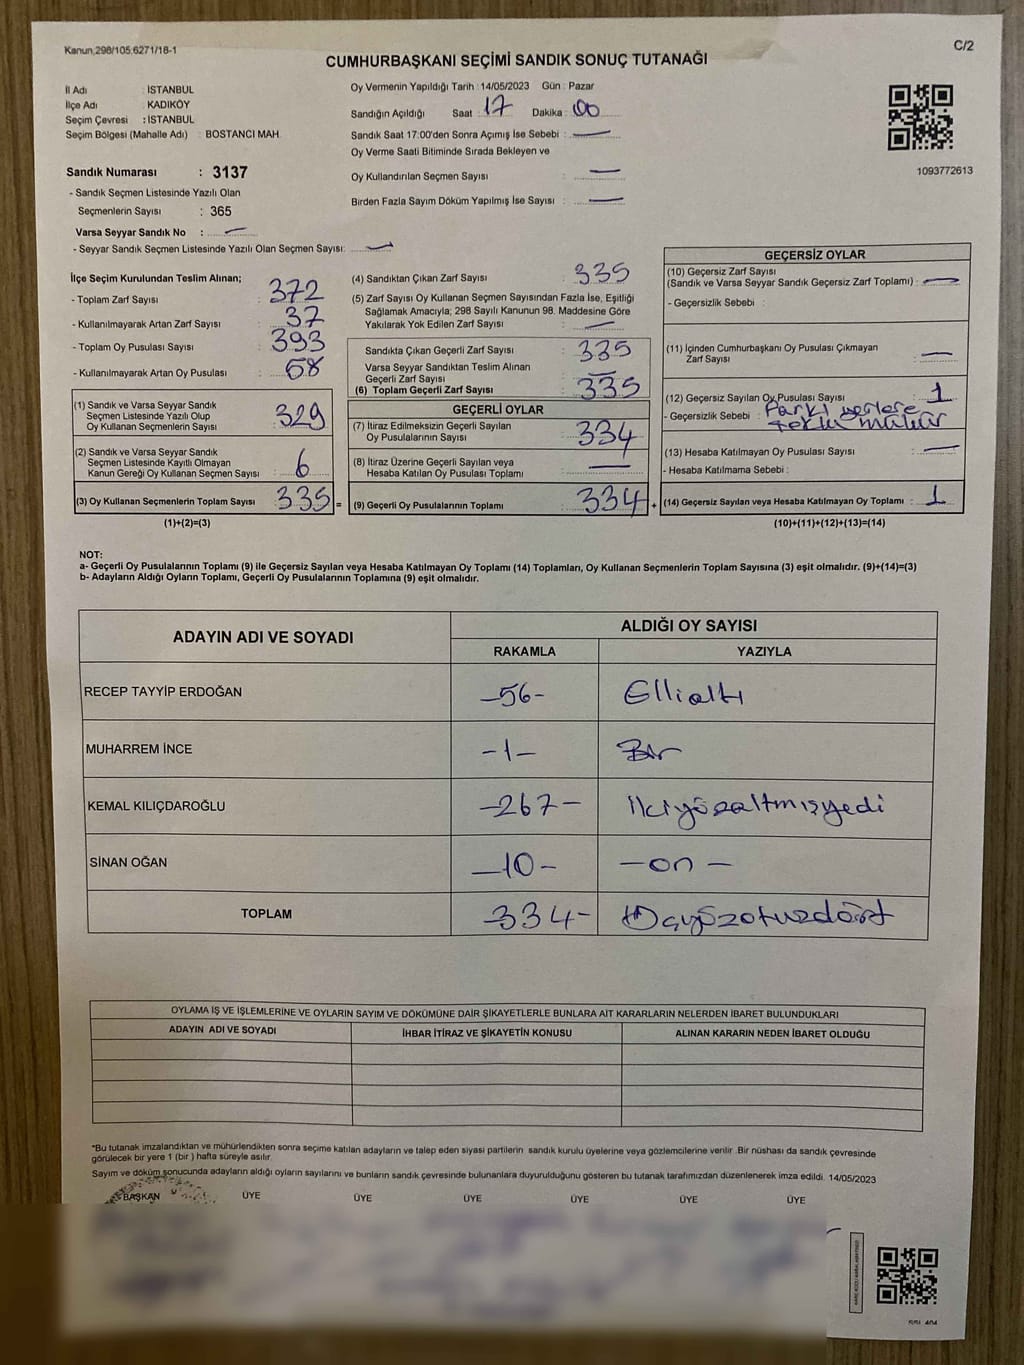 Kanun,298/105,6271/16-1
C/2
CUMHURBAŞKANI SEÇİMİ SANDIK SONUÇ TUTANAĞI
İl Adı : İSTANBUL
İlçe Adı : KADIKÖY
Seçim Çevresi : İSTANBUL
Seçim Bölgesi (Mahalle Adı) : BOSTANCI MAH.
Oy Vermenin Yapıldığı Tarih : 14/05/2023 Gün : Pazar
Sandığın Açıldığı Saat : 17 Dakika : 00
Sandık Saat 17:00'den Sonra Açımış İse Sebebi : —
Oy Verme Saati Bitiminde Sırada Bekleyen ve
Oy Kullandırılan Seçmen Sayısı : —
Birden Fazla Sayım Döküm Yapılmış İse Sayısı : —
1093772613
Sandık Numarası : 3137
- Sandık Seçmen Listesinde Yazılı Olan
Seçmenlerin Sayısı : 365
Varsa Seyyar Sandık No : —
- Seyyar Sandık Seçmen Listesinde Yazılı Olan Seçmen Sayısı: —
İlçe Seçim Kurulundan Teslim Alınan;
- Toplam Zarf Sayısı : 372
- Kullanılmayarak Artan Zarf Sayısı : 37
- Toplam Oy Pusulası Sayısı : 393
- Kullanılmayarak Artan Oy Pusulası : 58
(1) Sandık ve Varsa Seyyar Sandık
Seçmen Listesinde Yazılı Olup
Oy Kullanan Seçmenlerin Sayısı : 329
(2) Sandık ve Varsa Seyyar Sandık
Seçmen Listesinde Kayıtlı Olmayan
Kanun Gereği Oy Kullanan Seçmen Sayısı : 6
(3) Oy Kullanan Seçmenlerin Toplam Sayısı : 335 =
(1)+(2)=(3)
(4) Sandıktan Çıkan Zarf Sayısı : 335
(5) Zarf Sayısı Oy Kullanan Seçmen Sayısından Fazla İse, Eşitliği
Sağlamak Amacıyla; 298 Sayılı Kanunun 98. Maddesine Göre
Yakılarak Yok Edilen Zarf Sayısı : —
Sandıkta Çıkan Geçerli Zarf Sayısı : 335
Varsa Seyyar Sandıktan Teslim Alınan
Geçerli Zarf Sayısı : —
(6) Toplam Geçerli Zarf Sayısı : 335
GEÇERLİ OYLAR
(7) İtiraz Edilmeksizin Geçerli Sayılan
Oy Pusulalarının Sayısı : 334
(8) İtiraz Üzerine Geçerli Sayılan veya
Hesaba Katılan Oy Pusulası Toplamı : —
(9) Geçerli Oy Pusulalarının Toplamı : 334 +
GEÇERSİZ OYLAR
(10) Geçersiz Zarf Sayısı
(Sandık ve Varsa Seyyar Sandık Geçersiz Zarf Toplamı) : —
- Geçersizlik Sebebi :
(11) İçinden Cumhurbaşkanı Oy Pusulası Çıkmayan
Zarf Sayısı : —
(12) Geçersiz Sayılan Oy Pusulası Sayısı : 1
- Geçersizlik Sebebi : Farklı yerlere
mühür
(13) Hesaba Katılmayan Oy Pusulası Sayısı : —
- Hesaba Katılmama Sebebi :
(14) Geçersiz Sayılan veya Hesaba Katılmayan Oy Toplamı : 1
(10)+(11)+(12)+(13)=(14)
NOT:
a- Geçerli Oy Pusulalarının Toplamı (9) ile Geçersiz Sayılan veya Hesaba Katılmayan Oy Toplamı (14) Toplamları, Oy Kullanan Seçmenlerin Toplam Sayısına (3) eşit olmalıdır. (9)+(14)=(3)
b- Adayların Aldığı Oyların Toplamı, Geçerli Oy Pusulalarının Toplamına (9) eşit olmalıdır.
ADAYIN ADI VE SOYADI
ALDIĞI OY SAYISI
RAKAMLA YAZIYLA
RECEP TAYYİP ERDOĞAN -56- Ellialtı
MUHARREM İNCE -1- Bir
KEMAL KILIÇDAROĞLU -267- ikiyüzaltmışyedi
SİNAN OĞAN -10- -on-
TOPLAM -334- Üçyüzotuzdört
OYLAMA İŞ VE İŞLEMLERİNE VE OYLARIN SAYIM VE DÖKÜMÜNE DAİR ŞİKAYETLERLE BUNLARA AİT KARARLARIN NELERDEN İBARET BULUNDUKLARI
ADAYIN ADI VE SOYADI İHBAR İTİRAZ VE ŞİKAYETİN KONUSU ALINAN KARARIN NEDEN İBARET OLDUĞU
*Bu tutanak imzalandıktan ve mühürlendikten sonra seçime katılan adayların ve talep eden siyasi partilerin sandık kurulu üyelerine veya gözlemcilerine verilir .Bir nüshası da sandık çevresinde
görülecek bir yere 1 (bir ) hafta süreyle asılır.
Sayım ve döküm sonucunda adayların aldığı oyların sayılarını ve bunların sandık çevresinde bulunanlara duyurulduğunu gösteren bu tutanak tarafımızdan düzenlenerek imza edildi. 14/05/2023
BAŞKAN ÜYE ÜYE ÜYE ÜYE ÜYE ÜYE